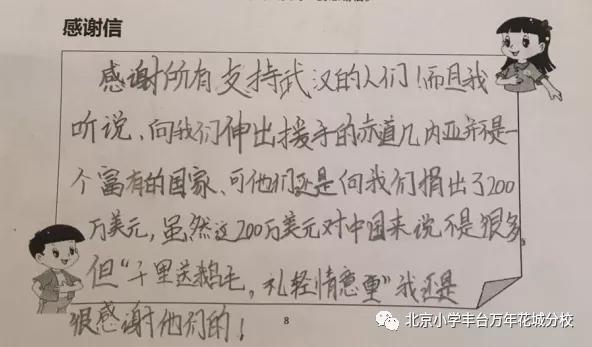 感谢信
感谢所有支持武汉的人们！而且我
听说，向我们伸出援手的赤道几内亚并不是一
个富有的国家、可他们还是向我们捐出了200
万美元，虽然这200万美元对中国来说不是很多，
但“千里送鹅毛，礼轻情意重”我还是
很感谢他们的！
8
北京小学丰台万年花城分校